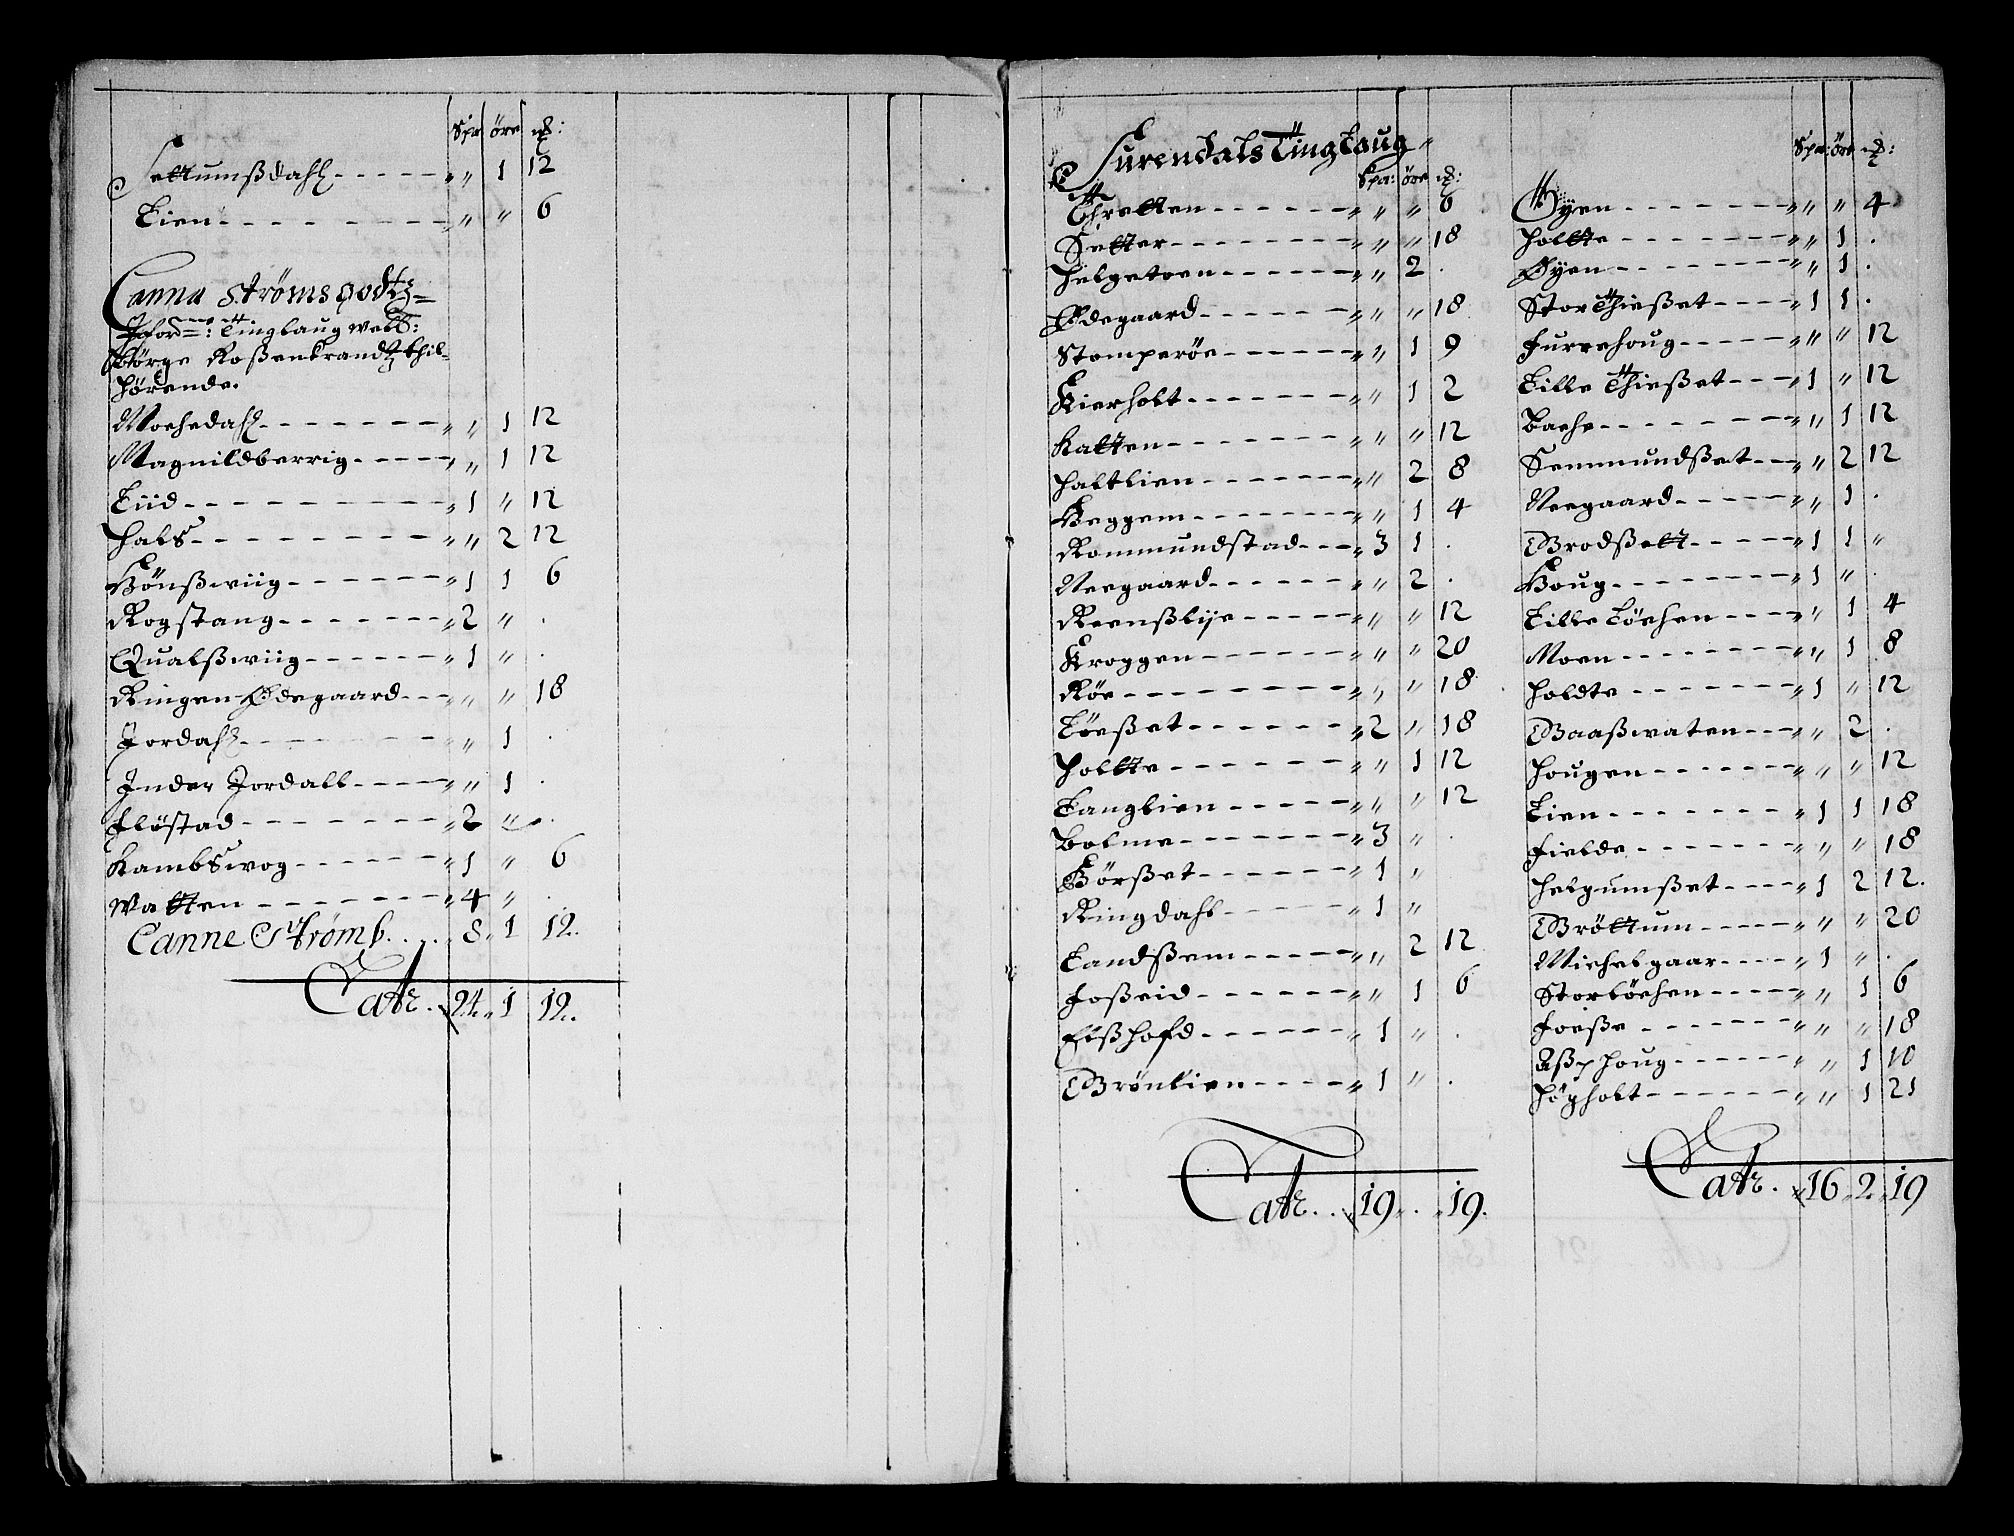 Spr øre ₰:
Settumßdahl - - - - - „ „ 1 12
Lien - - - - - - - - „ „ 6
Canna Strøms godtz =
Jfor=: Tinglaug welb:
Børge Roßenkrandtz thil-
hørende.
Mochedahl - - - - - - - „ „ 1 12
Magnildberrig - - - - - „ „ 1 12
Liid - - - - - - - - - „ 1 „ 12
Hals - - - - - - - - - „ „ 2 12
Bönßwiig - - - - - - „ 1 1 6
Rogstang - - - - - - - „ 2 „ .
Qualßwiig - - - - - - „ 1 „ .
Ringen Ødegaard - - - „ „ „ 18
Jordahl - - - - - - - „ „ 1 .
Jnder Jordall - - - - - „ „ 1 .
Fløstad - - - - - - - „ 2 „ .
Kambswog - - - - - - „ 1 „ 6
Watten - - - - - - - „ 4 „ .
Canne Strømb. . . . „ 8 „ 1 12.
Latr. 24 „ 1 12.
Surendals Tinglaug „
Spa: øre ₰:
Thretten - - - - - - „ „ „ 6
Setter - - - - - - - - „ „ „ 18
Helgetoen - - - - - - „ „ 2 .
Ødegaard - - - - - - „ „ „ 18
Stomperöe - - - - - - „ „ 1 9
Kierholt - - - - - - - „ „ 1 2
Katten - - - - - - - - „ „ „ 12
Haltlien - - - - - - - „ „ 2 8
Beggem - - - - - - - „ „ 1 4
Rommundstad - - - „ 3 1 .
Neegaard - - - - - - „ „ 2 .
Reenßlije - - - - - - „ „ „ 12
Kroggen - - - - - - - „ „ „ 20
Röe - - - - - - - - - „ „ „ 18
Löeßet - - - - - - - „ 2 „ 18
Holtte - - - - - - - - „ „ 1 12
Langlien - - - - - - „ „ „ 12
Bolme - - - - - - - „ 3 „ .
Börßet - - - - - - - „ 1 „
Ringdahl - - - - - - „ 1 „
Landßem - - - - - - „ „ 2 12
Foßeid - - - - - - - „ „ 1 6
Elßhofd - - - - - - - „ 1 „ .
Brönlien - - - - - „ 1 „ .
Latr. . . 19 „ . „ 19.
Spa: øre ₰:
Öyen - - - - - - - „ „ „ 4
Holtte - - - - - - - „ „ 1 .
Øyen - - - - - - - - „ „ 1 .
Stor Thießet - - - - „ 1 1 .
Furrehoug - - - - - „ „ „ 12
Lille Thießet - - - „ 1 „ 12
Bache - - - - - - - - „ „ 1 12
Semmundßet - - - „ „ 2 12
Neegaard - - - - - - „ „ 1 .
Brodßett - - - - - „ 1 1 „
Houg - - - - - - - - „ 1 „ .
Lille Löchen - - - - „ „ 1 4
Moen - - - - - - - - „ „ 1 8
Holdte - - - - - - - „ 1 „ 12
Baaßwaten - - - - „ „ 2 .
Hougen - - - - - - - „ „ „ 12
Lien - - - - - - - - „ 1 1 18
Fielde - - - - - - - „ „ „ 18
Helgumßet - - - - „ 1 2 12.
Bröttum - - - - - „ „ „ 20
Michelgaar - - - - „ 1 „ .
Storlöchen - - - - - „ „ 1 6
Foeße - - - - - - - „ „ „ 18
Aßphoug - - - - - - „ „ 1 10
Högholt - - - - - - - „ „ 1 21
Latr. „ 16 „ 2 „ 19